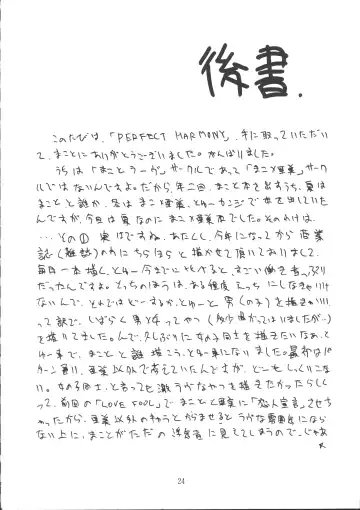 後書.
このたびは、「PERFECT HARMONY」手に取っていただい
て、まことにありがとうございました。がんばりました。
うちは「まことラーヴ」サークルであって「まこ×亜美」サーク
ルではないんですよ。だから、年二回、まこと本を出すうち、夏は
まことと誰か、冬はまこ×亜美、とゆーカンジで本を出していた
んですが、今回は夏なのにまこ×亜美本でした。そのわけは、
…その① 実はですね、あたくし、今年になってから商業
誌(雑誌)のおにちらほらと描かせて頂いておりまして、
毎月一本描く、とゆー今までにすごい働きっぷり
だったんですよ。とっちのほうは、ある程度えっちにしなきゃいけ
ないんで、とゆーと男(の子)を描きゃいい
って訳で、しばらく男と女ってやつ(多少
を描いてました。んで、久しぶりに女の子同士を描きたいなあ、と
ゆー事で、まことと誰描こう、とゆー事になりました。最初はパ
ターン通り、亜美以外で考えていたんですが、どーもしっくりこな
い。女の子同士、と言っても激ラヴなやつを描きたかったらしく
って、前回の「LOVE FOOL」でまことと亜美に「恋人宣言」させち
ゃったから、亜美以外のキャラとからませるとラヴな雰囲気になら
ない上に、まことがただの浮気者に見えてしまうので、じゃあ
24